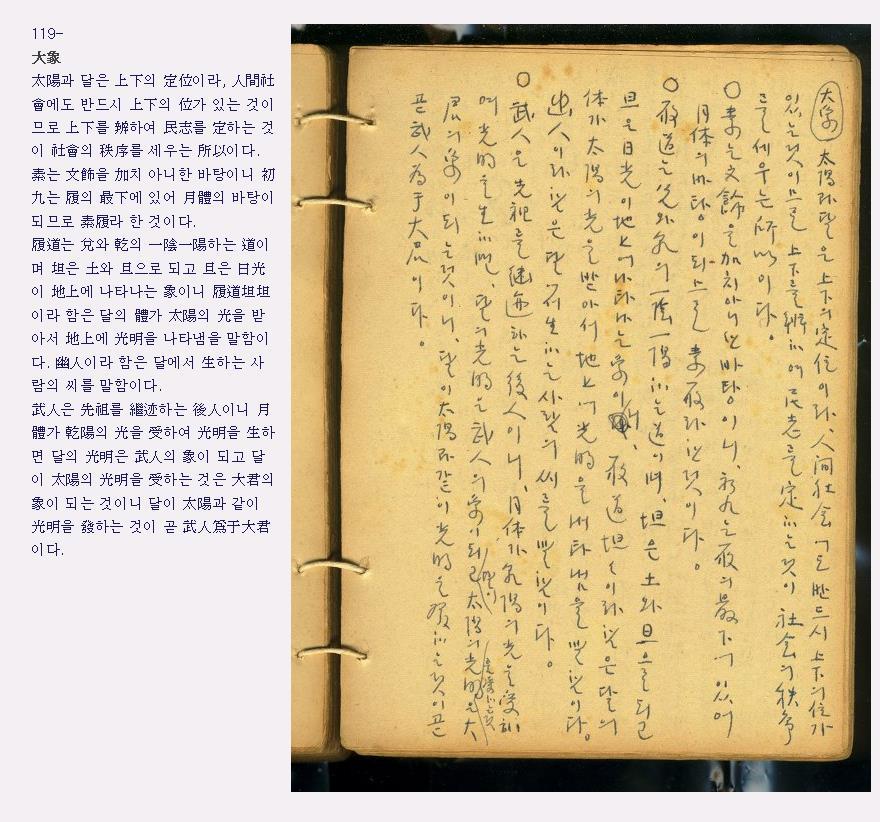 119-
大象
太陽과 달은 上下의 定位이라, 人間社
會에도 반드시 上下의 位가 있는 것이
므로 上下를 辨하여 民志를 定하는 것
이 社會의 秩序를 세우는 所以이다.
素는 文飾을 加치 아니한 바탕이니 初
九는 履의 最下에 있어 月體의 바탕이
되므로 素履라 한 것이다.
履道는 兌와 乾의 一陰一陽하는 道이
며 坦은 土와 旦으로 되고 旦은 日光
이 地上에 나타나는 象이니 履道坦坦
이라 함은 달의 體가 太陽의 光을 받
아서 地上에 光明을 나타냄을 말함이
다. 幽人이라 함은 달에서 生하는 사
람의 씨를 말함이다.
武人은 先祖를 繼迹하는 後人이니 月
體가 乾陽의 光을 受하여 光明을 生하
면 달의 光明은 武人의 象이 되고 달
이 太陽의 光明을 受하는 것은 大君의
象이 되는 것이니 달이 太陽과 같이
光明을 發하는 것이 곧 武人爲于大君
이다.
大象 太陽과 달은 上下의 定位이라, 人间社会에도 반드시 上下의 位가
있는것이므로 上下를 辨하여 民志를 定하는것이 社会의 秩序
를 세우는 所以이다。
○ 素는 文飾을 加치 아니한 바탕이니, 初九는 履의 最下에 있어
月体의 바탕이 되므로 素履라 한것이다。
○ 履道는 兌와 乾의 一陰一陽하는 道이며, 坦은 土와 旦으로 되고
旦은 日光이 地上에 나타나는 象이니, 履道坦々이라 함은 달의
体가 太陽의 光을 받아서 地上에 光明을 나타냄을 말함이다。
幽人이라 함은 달에서 生하는 사람의 씨를 말함이다。
○ 武人은 先祖를 繼迹하는 後人이니, 月体가 乾陽의 光을 受하
여 光明을 生하면, 달의 光明은 武人의 象이 되고 달이 太陽의 光明을 受하는 것은 大
君의 象이 되는것이니, 달이 太陽과 같이 光明을 發하는것이 곧
곧 武人為于大君이다。